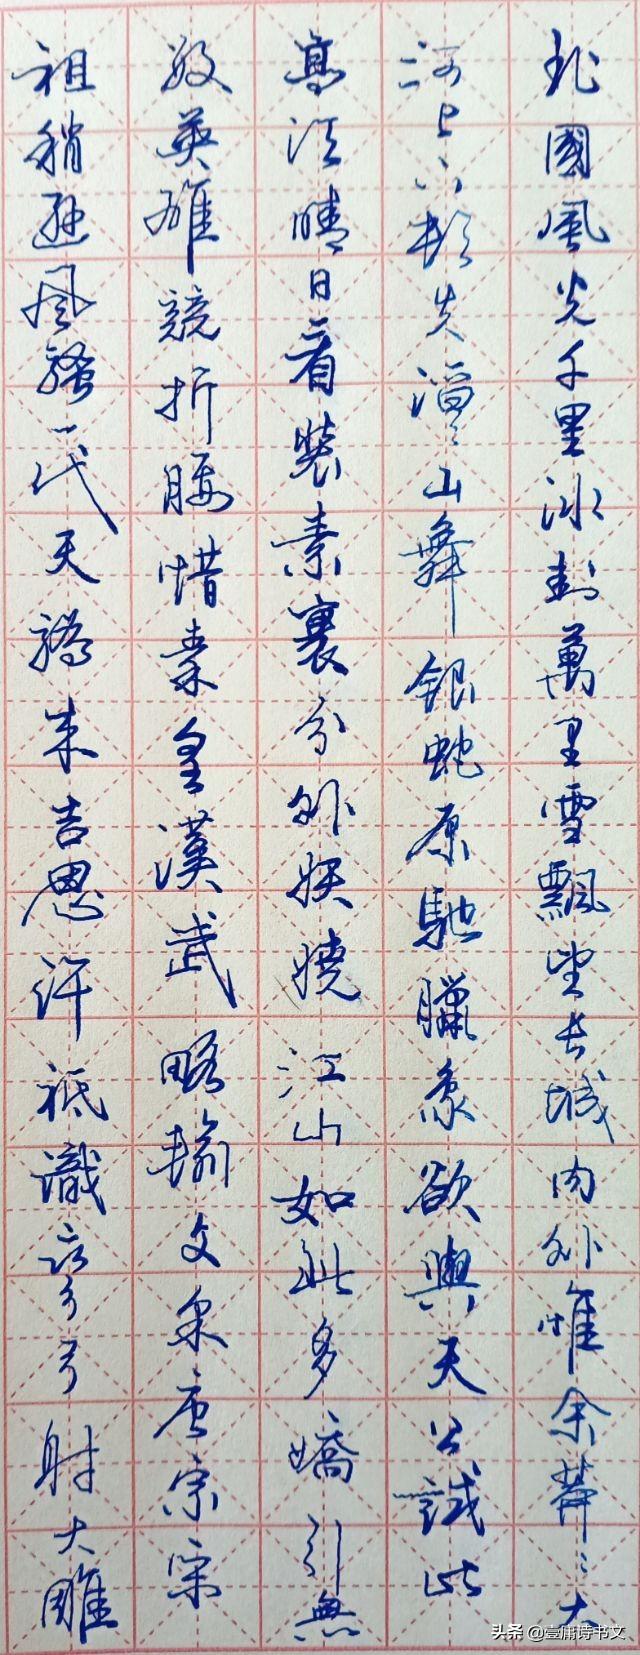 北國風光千里冰封萬里雪飄望長城内外惟余莽々大
河上下頓失滔々山舞銀蛇原馳臘象欲與天公試比
高須晴日看裝素裹分外妖嬈江山如此多嬌引無
數英雄競折腰惜秦皇漢武略輸文采唐宗宋
祖稍遜風騷一代天驕成吉思汗祗識彎弓射大雕
头条 @壹庸诗书文